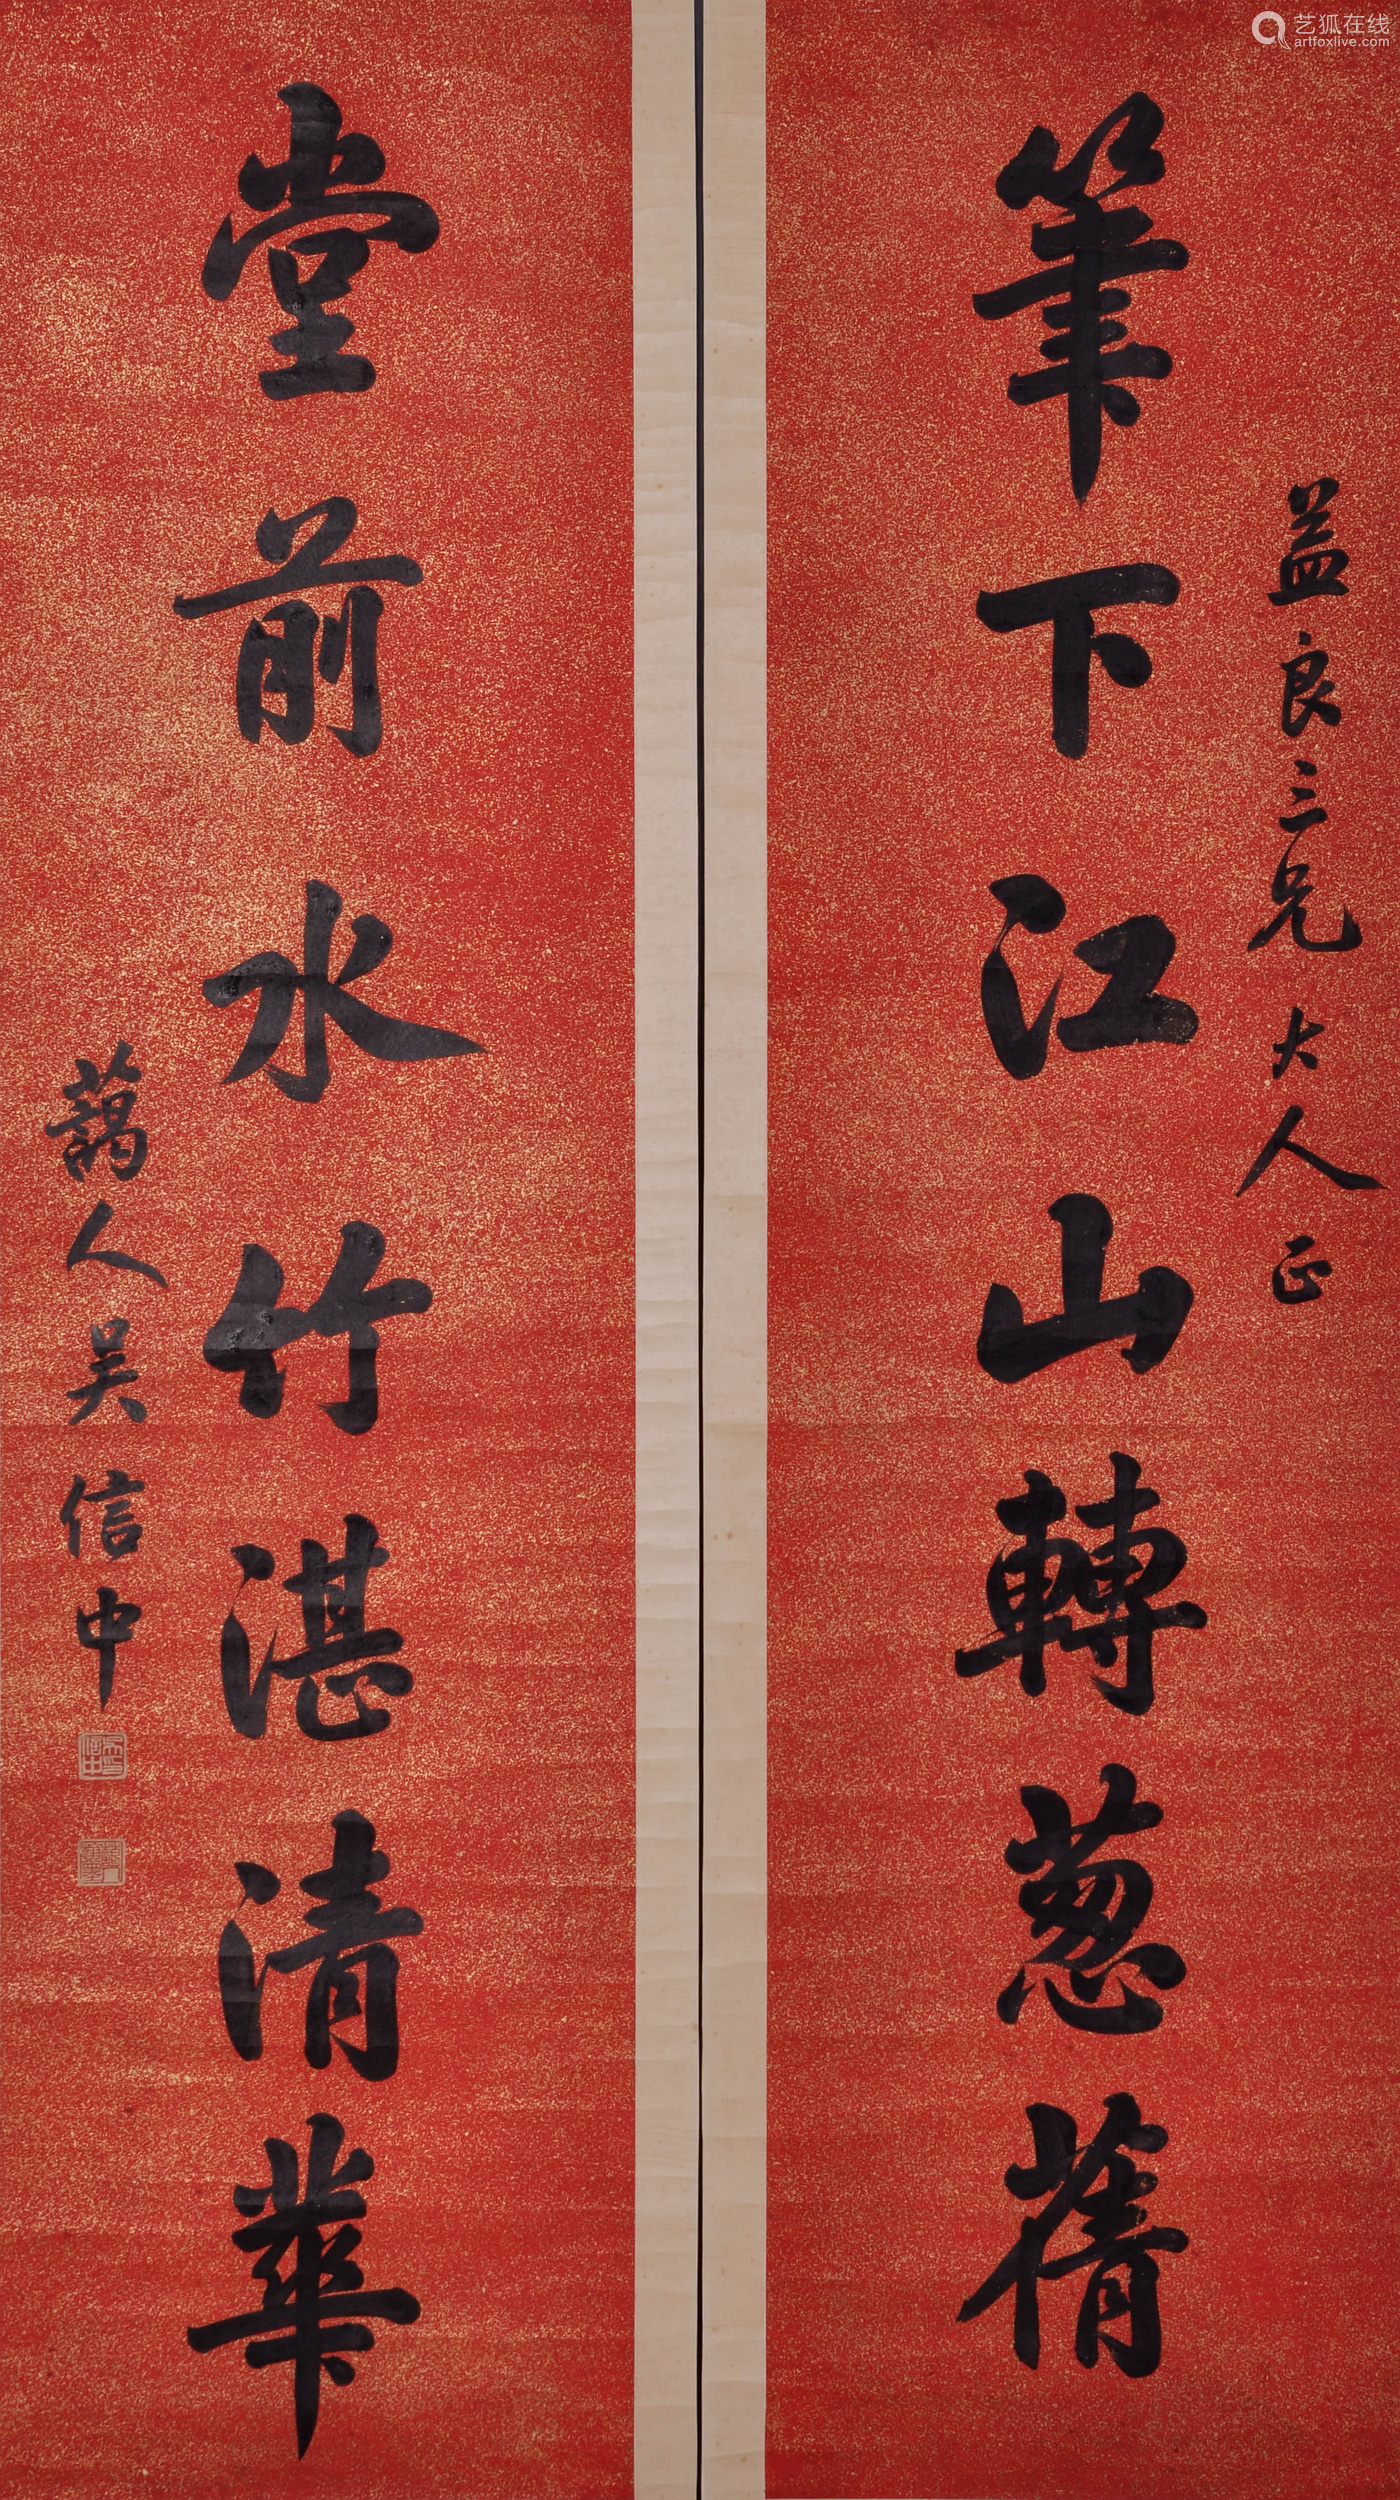 艺狐在线
artfoxlive.com
益良三兄大人正
筆下江山轉葱蒨
堂前水竹湛清華
藹人吴信中